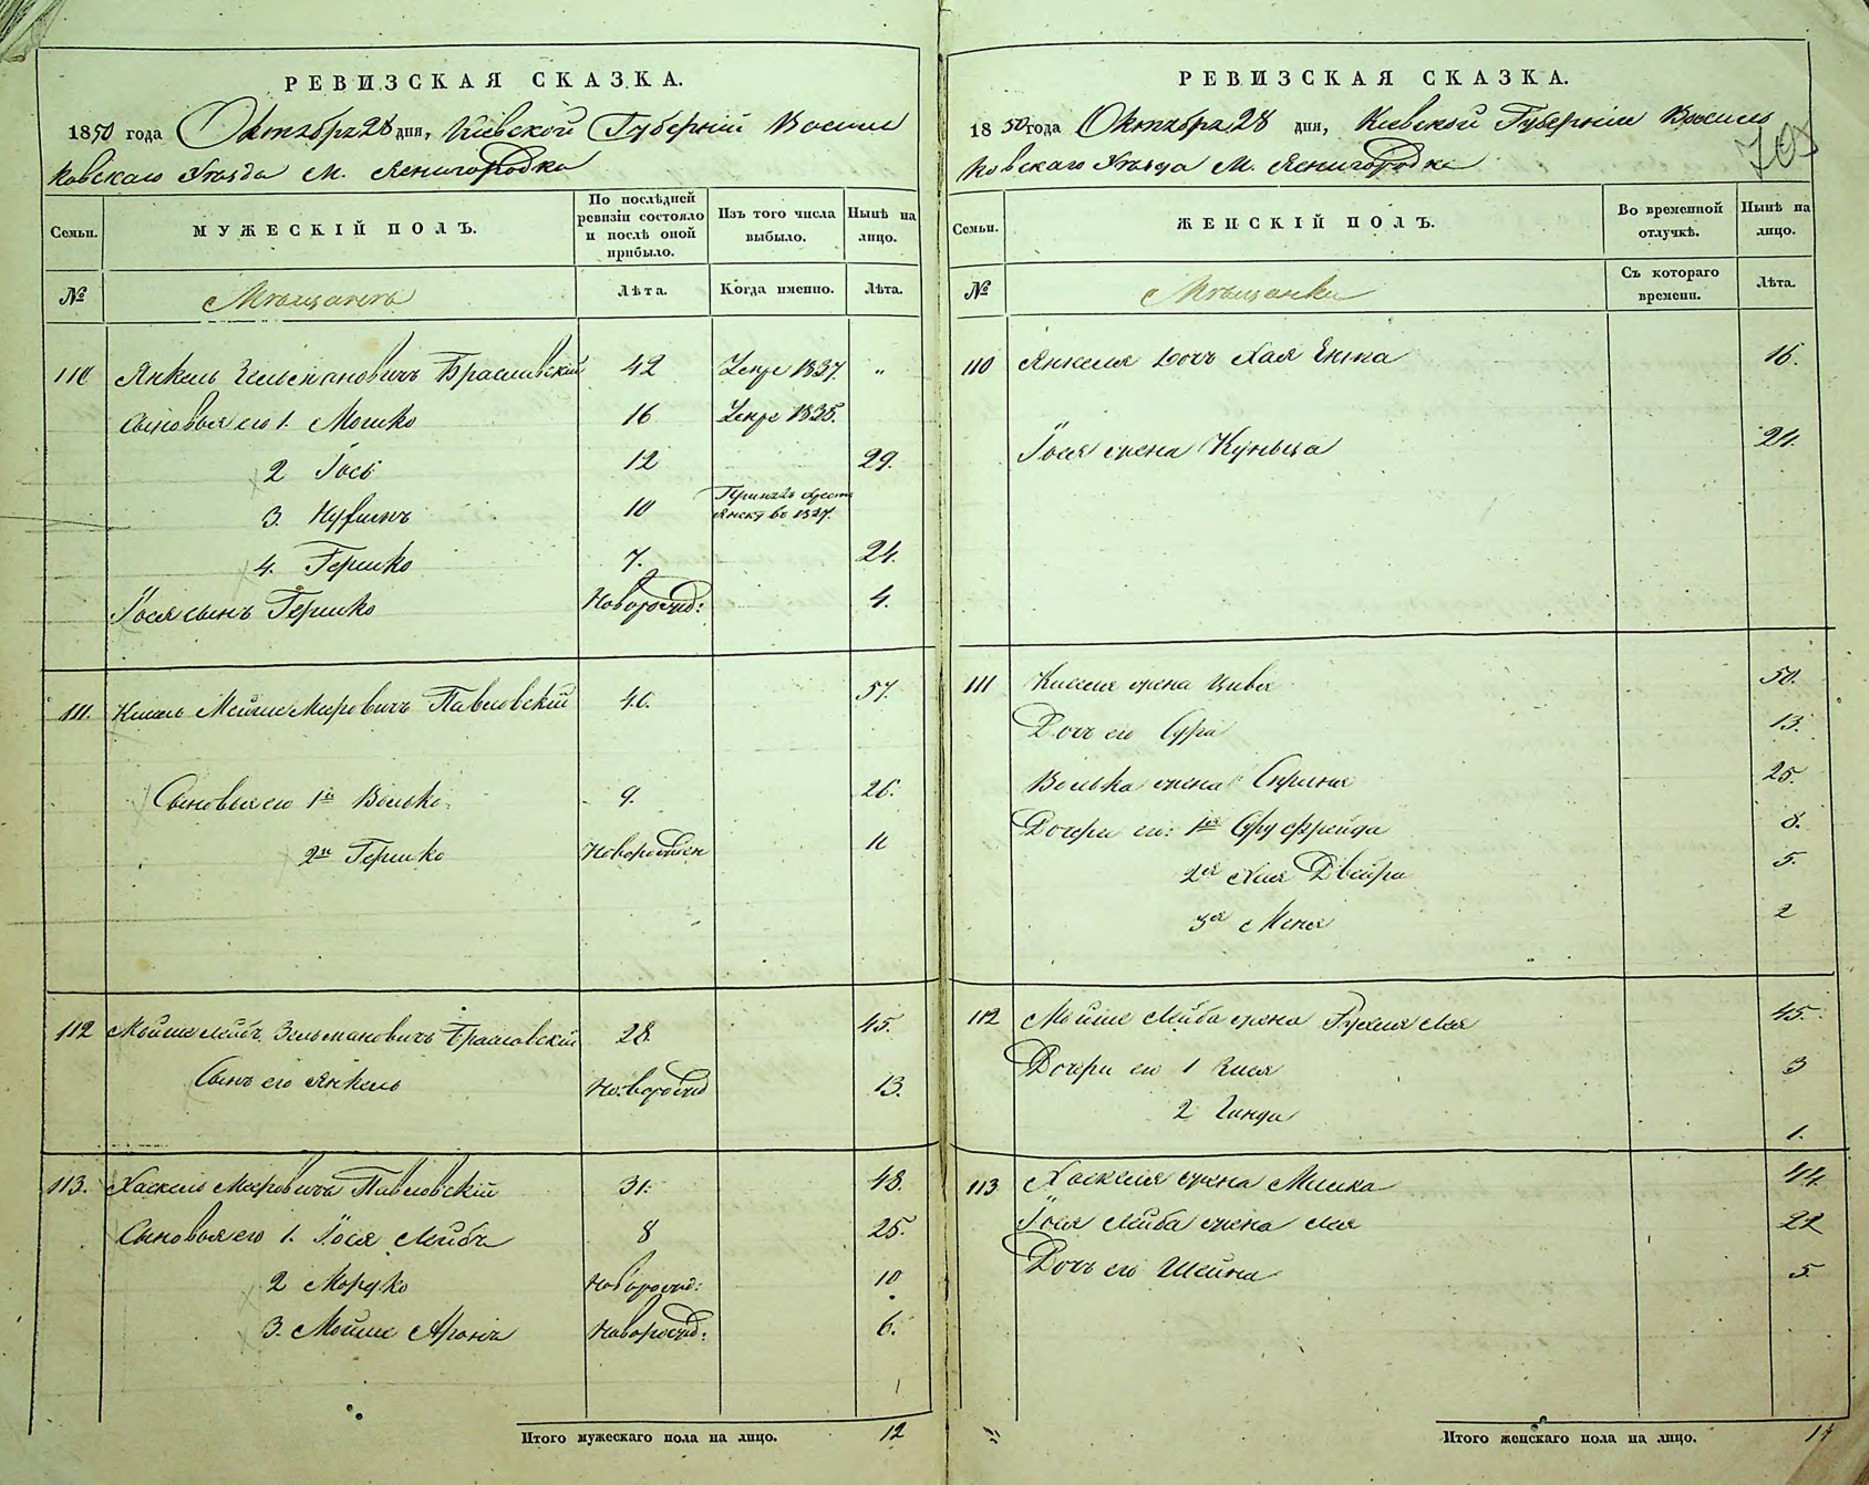 РЕВИЗСКАЯ СКАЗКА.
1850 года Октября 28 дня, Кіевской Губерніи Василь
ковскаго Уѣзда М. Ясногородка
Семьи.
МУЖЕСКІЙ ПОЛЪ.
По послѣдней ревизіи состояло и послѣ оной прибыло.
Изъ того числа выбыло.
Нынѣ на лицо.
№
Мѣщанъ
Лѣта.
Когда именно.
Лѣта.
110 Янкель Зельмановичъ Браславскій 42 Умре 1837. "
Сыновья его 1. Мошко 16 Умре 1835.
2 Іось 12 29.
3. 10 во 1827.
4. Гершко 7. 24.
Іося сынъ Гершко Новорожд: 4.
111. Кисель Мейше Меровичъ Павловскій 40. 57.
Сыновья его 1й Волько 9. 26.
2й Гершко Новорожден 11
112 Мойше Лейбъ Зельмановичъ Браславскій 28. 45.
Сынъ его Янкель Новорожд 13.
113. Хаскель Меровичъ Павловскій 31. 48.
Сыновья его 1. Іося Лейбъ 8 25.
2 Мордко Новорожд: 10
3. Мойше Аронъ Новорожд: 6.
Итого мужескаго пола на лицо. 12
РЕВИЗСКАЯ СКАЗКА.
1850 года Октября 28 дня, Кіевской Губерніи Василь
ковскаго Уѣзда М. Ясногородка
Семьи.
ЖЕНСКІЙ ПОЛЪ.
Во временной отлучкѣ.
Нынѣ на лицо.
№
Мѣщанки
Съ котораго времени.
Лѣта.
110 Янкеля дочь Хая Ента 16.
Іося жена Куньца 21.
111 Киселя жена Цивья 50.
Дочь его Сура 13.
Волька жена 25.
Дочери его: 1я Суру Фрейда 8.
2я Хая Двейра 5.
3я Меня 2
112 Мойше Лейба жена Рухля Лея 45.
Дочери его 1 3
2 1.
113 Хаскеля жена Мишка 44.
Іося Лейба жена Лея 22
Дочь его Шейна 5
Итого женскаго пола на лицо.